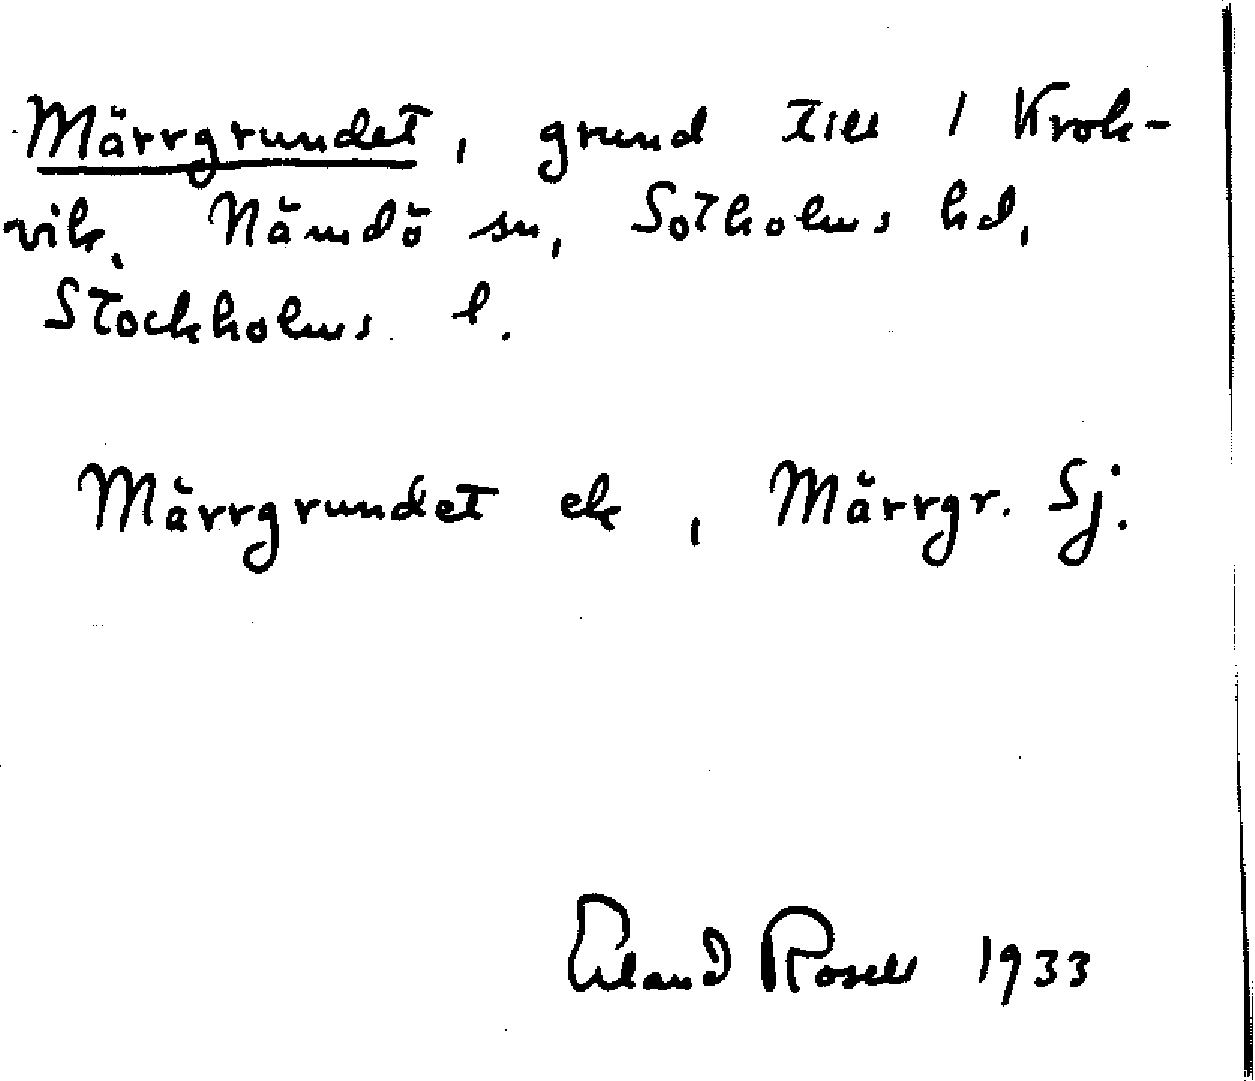 Märrgrundet, grund till 1 Krok-
vik, Nämdö sn, Sotholms hd,
Stockholms l.
Märrgrundet ek, Märrgr. Sj.
Erland Rosell 1933